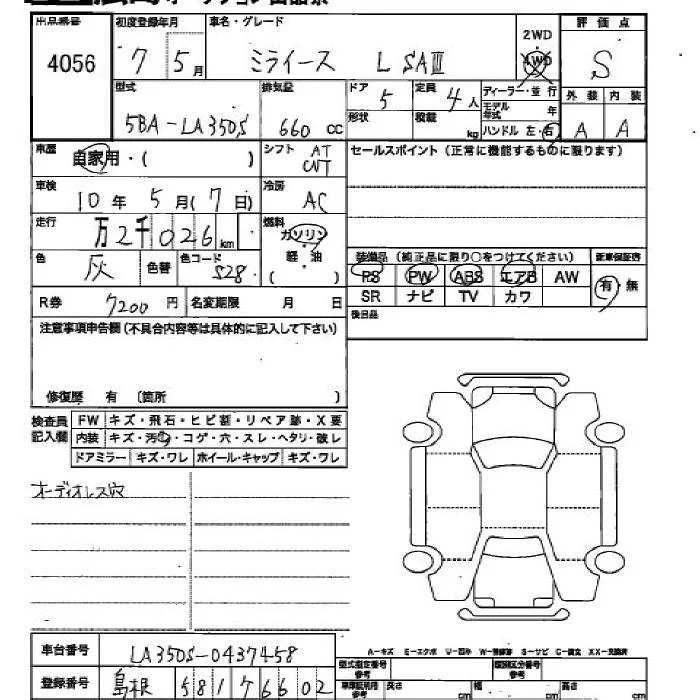 出品番号 初度登録年月 車名・グレード 評価点
4056 7 5月 ミライース L SAⅢ 2WD 4WD S
型式 排気量 ドア 5 定員 4人 ディーラー・並行 外装 内装
モデル年式 年
5BA-LA350S 660cc 形状 積載 kg ハンドル 左・右 A A
車歴 自家用・( ) シフト AT CVT セールスポイント(正常に機能するものに限ります)
車検 10年 5月(7日) 冷房 AC
走行 万2千026km 燃料 ガソリン 軽・油 ( )
色 灰 色替 色コード S28 装備品(純正品に限り○をつけてください) 新車保証書
PS PW ABS エアB AW 有・無
R券 7200円 名変期限 月 日 SR ナビ TV カワ
後日品
注意事項申告欄(不具合内容等は具体的に記入して下さい)
修復歴 有 〔箇所 〕
検査員記入欄 FW キズ・飛石・ヒビ割・リペア跡・X要
内装 キズ・汚・コゲ・穴・スレ・ヘタリ・破レ
ドアミラー キズ・ワレ ホイール・キャップ キズ・ワレ
オーディオレス穴
A-キズ E-エクボ U-凹み W-補修跡 S-サビ C-腐食 XX-交換済
車台番号 LA350S-0437458 型式指定番号 参考 類別区分番号 参考
登録番号 島根 581 7 6602 車庫証明用 参考 長さ cm 幅 cm 高さ cm